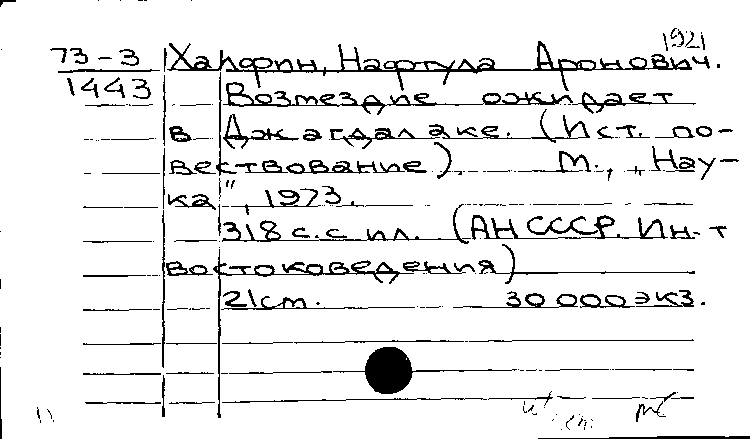 1921
73-3 Халфин, Нафтула Аронович.
1443 Возмездие ожидает
в Джагдалаке. (Ист. по-
вествование). М., „Нау-
ка", 1973.
318 с. с ил. (АН СССР. Ин-т
востоковедения)
21 см. 30 000 экз.